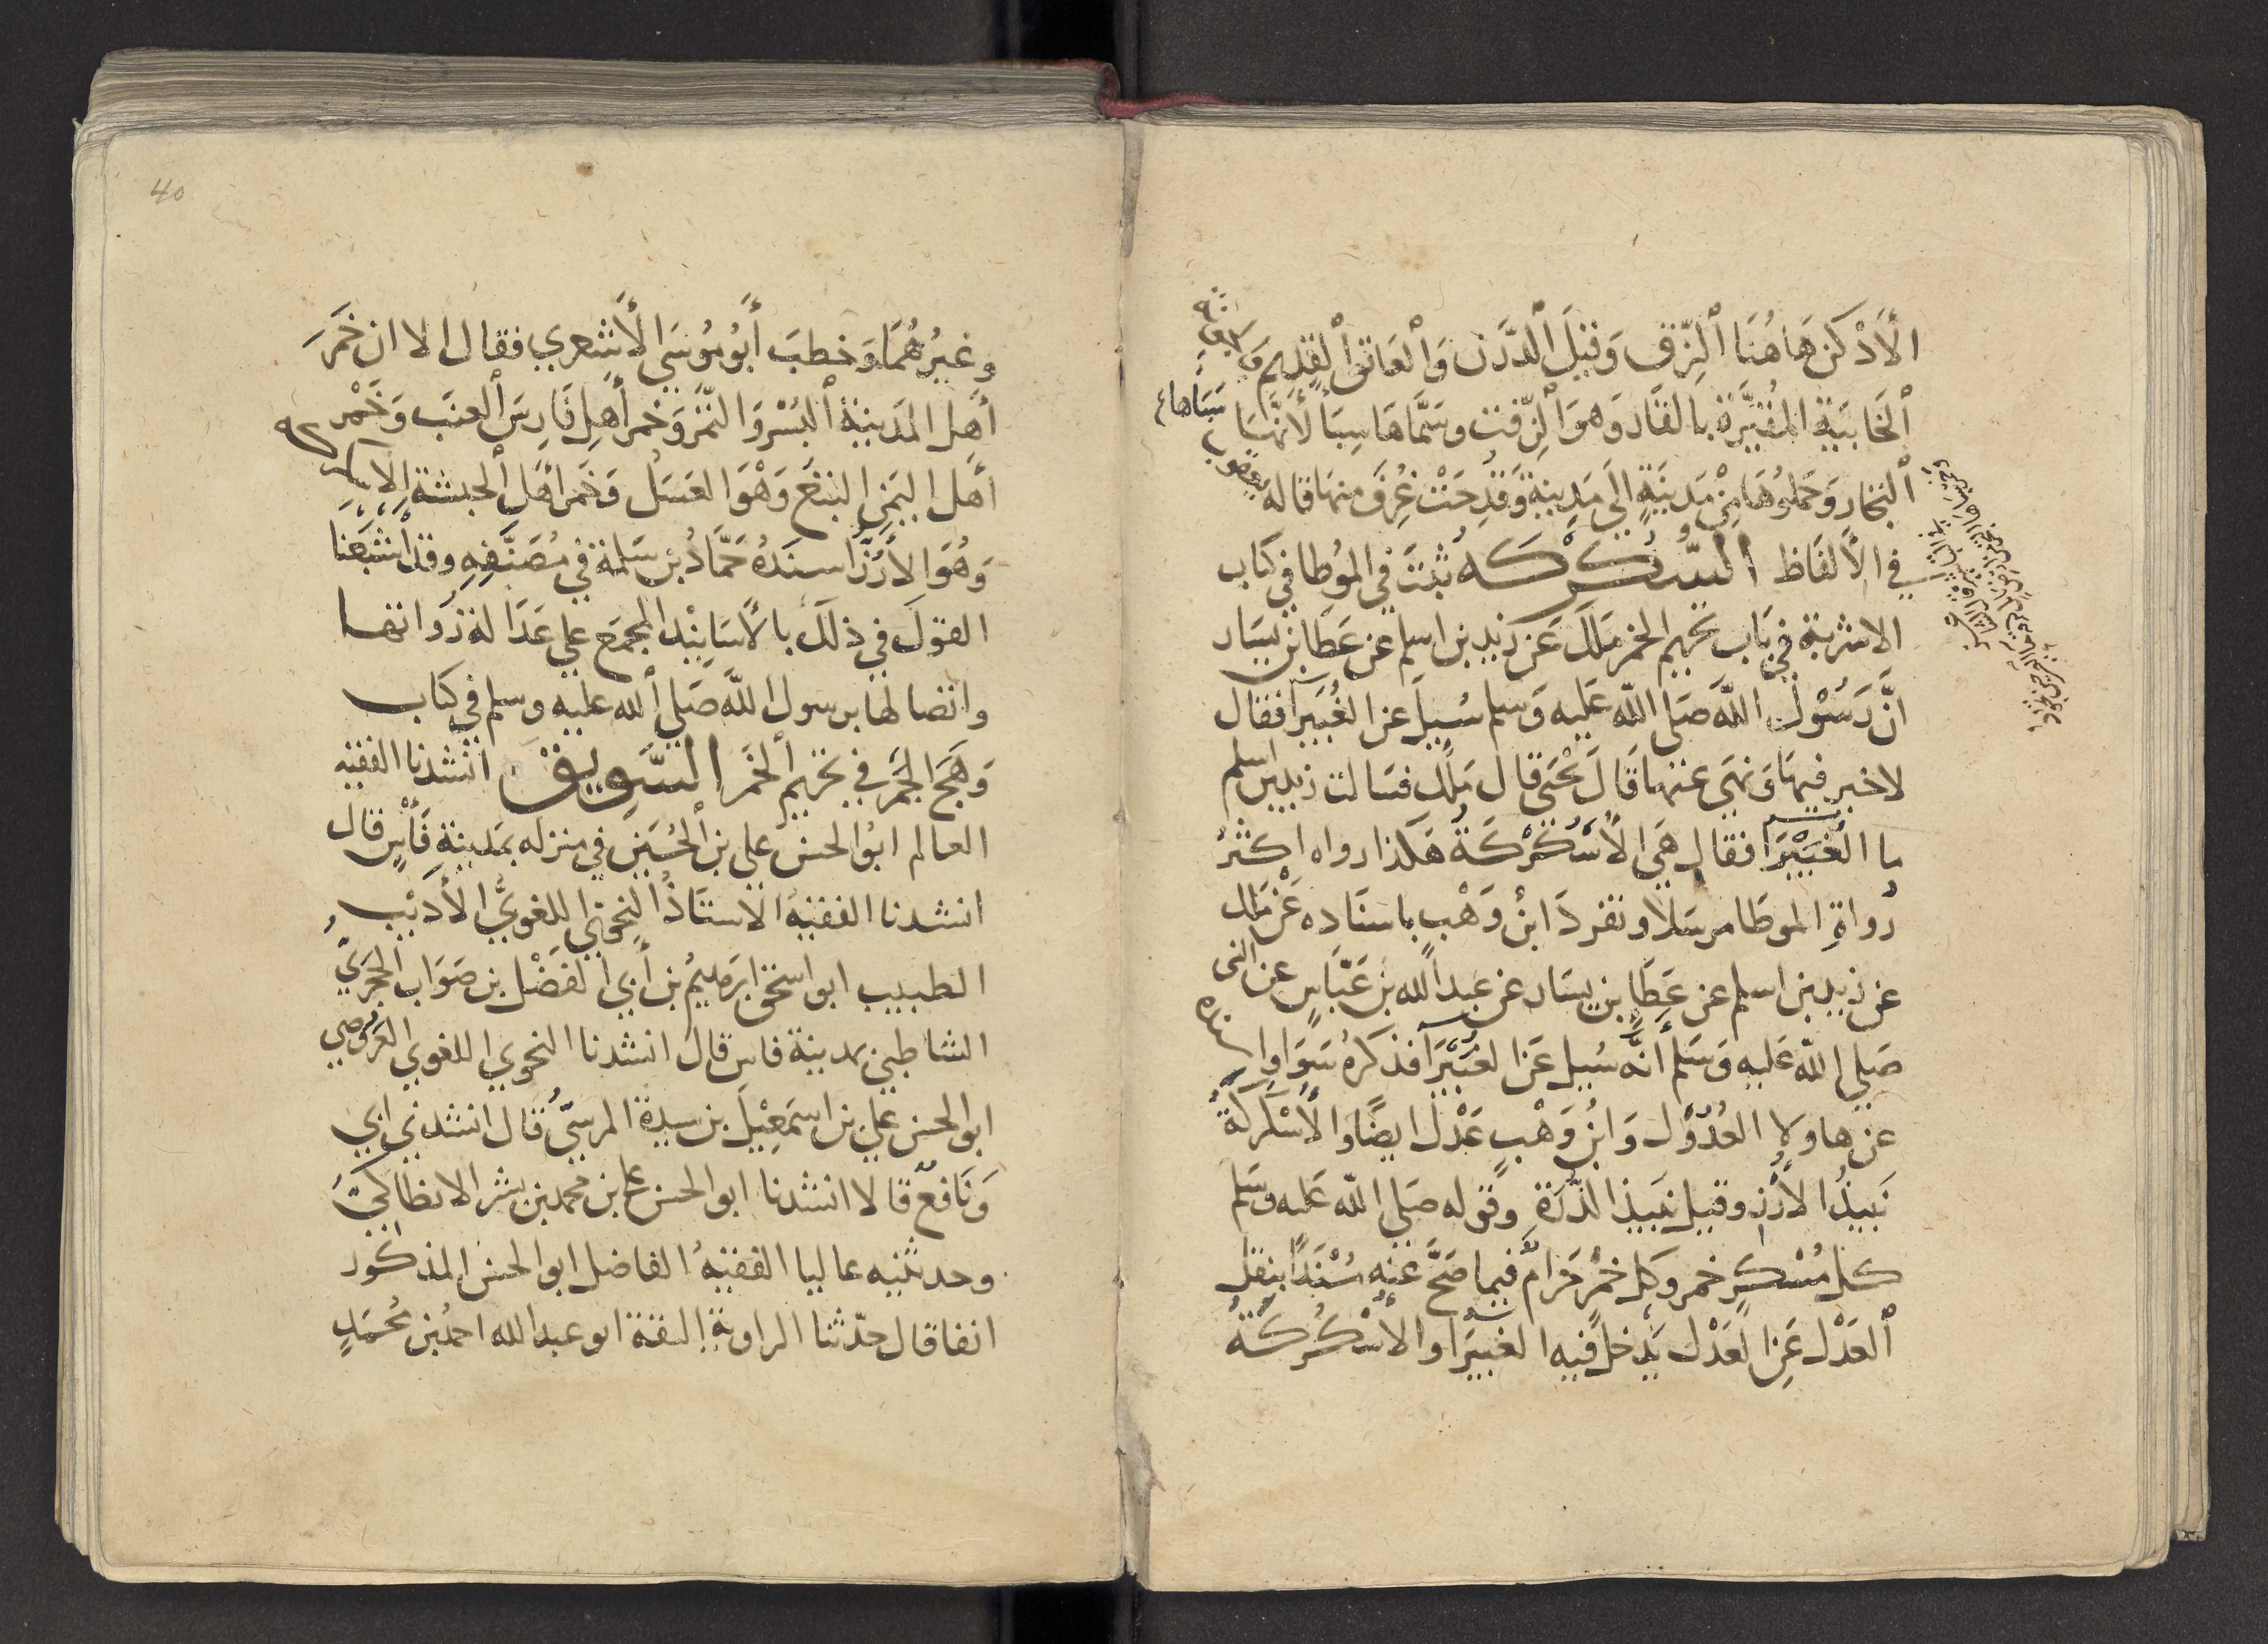 الأَدْكن هَاهُنَا ٱلزّق وَقيلَ ٱلدَّن وَٱلعَاتِق ٱلقديم
ٱلخَابيَة المُقَيَّرَة بالقَار وَهوَ ٱلزّفت وسَمَّاهَا سِبَأ لأَنَّهَا سَبَاها
ٱلتجار وَحَملوُهَا مِنْ مَدينَةٍ الَى مَدِينة وَقدِحَتْ غُرفَ منهَا قاله يعقوب
في الألفَاظ السّكركه ثبتَ في الموُطا في كتَاب
الاشربة في بَاب تحريم الخمر ملَك عَن زَيد بن اسلم عن عَطَا بن يَسَار
انَّ رَسُوْلَ اللَّه صَلى اللّه عَليه وَسلم سُيلَ عن الغُبَيرَآ فقال
لا خير فيهَا وَنهَى عنها قَالَ يَحْيَى قال مَلك فسَالت زيد بن اسلم
ما الغُبَيْرَا فقال هَى الأسْكُرْكَةُ هَكَذا رواه اكثَرُ
رُواةِ الموطَا مرسَلا وتفردَ ابنُ وَهْبٍ باسنَاده عَنْ مَالك
عن زيد بن اسلم عن عَطَا بن يَسَار عن عَبد الله بن عَبّاسٍ عن النبى
صَلى اللّه عَليه وَسَلم أَنَّه سُيل عَن الغُبَيْرَا فذكرَهُ سَوَا
عن هاولا العُدُوْل وَابنُ وَهْبٍ عَدْل ايضًا وَالأَسْكركَةُ
نَبيذُ الأرُز وقيل نَبيذ الذّرَة وقوله صَلى اللّه عليه وسَلم
كل مُسْكِرٍ خمر وَكل خمْر حَرَامٌ فيما صَحَّ عنه مُسْنَدًا بنقل
ٱلعَدْل عَنِ العَدْل يَدخل فيه الغبيرَا والأسْكُركَةُ
وغيرُهُمَا وَخطبَ أَبُو مُوسَى الأَشعري فقال الا ان خَمرَ
أَهِل المَدينة ٱلبُسْر وَالتّمْر وَخمر أَهِل فَارِسَ ٱلعنَب وَخَمْر
اهَل اليَمن البتع وَهْوَ العسَل وَخَمر اهَل ٱلحبشة
وَهُوَ الأرُزُّ اسندَهُ حَمَّادُ بن سَلمة في مُصَنَّفِهِ وقد أشبَعنَا
القولَ في ذلَكَ بالأسَانيْد المجمَع على عَدَالة رُواتها
واتصالها برسول اللَّه صَلى ٱلله عليه وسلم في كتاب
وَهَج الجَمر في تحريم ٱلخَمر السَّوِيق انشدنا الفقيه
العالم ابوُ الحسن على بن ٱلحُسَين في منزله بمَدينةِ فَأس قال
انشدنا الفقيهُ الاستَاذُ النحوَيّ اللغويُّ الأَديْب
الطبيب ابو اسحق ابرَهيمُ بن أبي الفَضْل بن صَوَاب الحجريّ
الشاطبى بمدينة فاس قال انشدنا النحوي اللغوي العَرُوضي
ابو الحسن علي بن اسمَعِيلَ بن سيدة المرسيّ قال انشدني ابي
وَنَافعٌ قالا انشدنا ابو الحسن على بن محمد بن بشر الانطاكيّ
وحدثنيه عاليا الفقيهُ الفاضل ابو الحسن المذكور
انفا قال حدّثنا الراوية الثقة ابو عبد الله احمدُ بن مُحمَدٍ
40